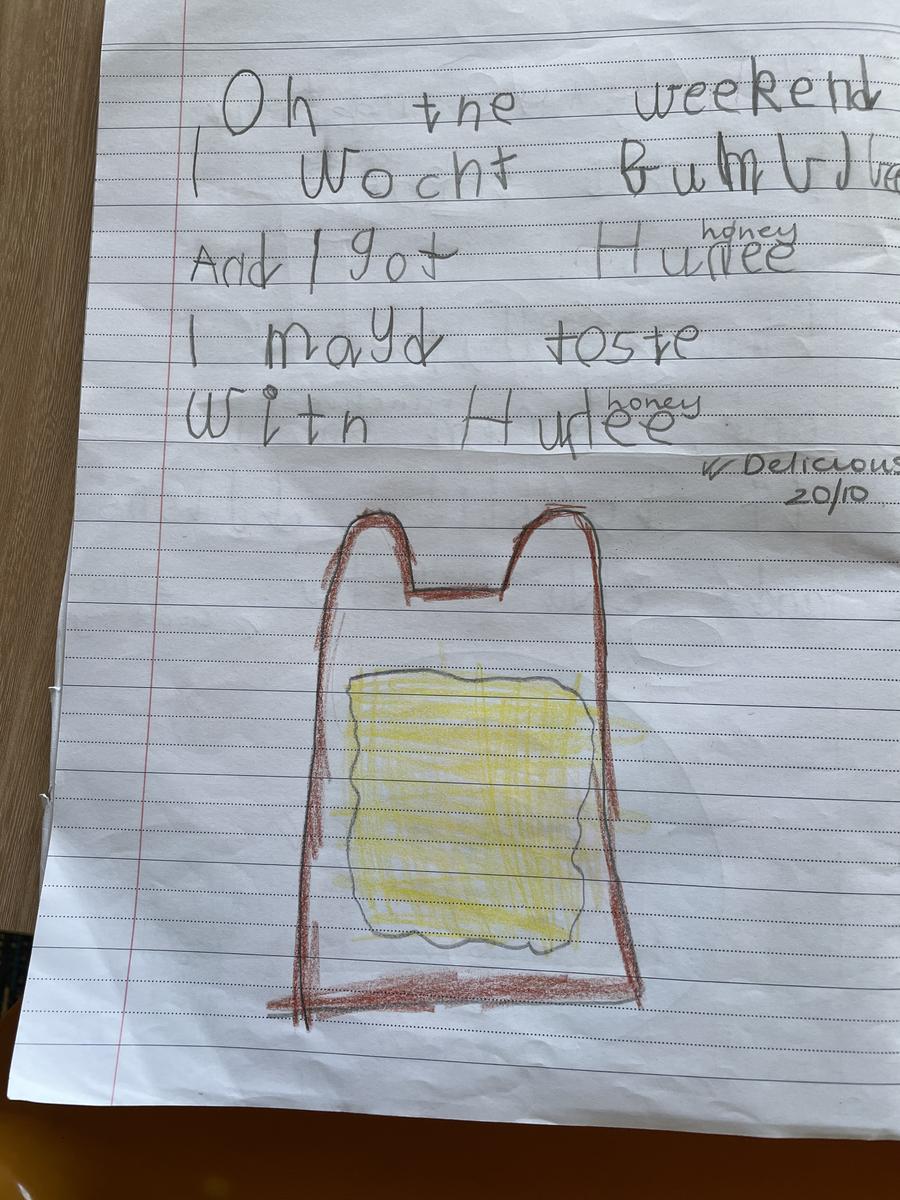 Oh the weekend
I wocht Bumblbee
And I got Hunee
honey
I mayd toste
With Hunee
honey
✓ Delicious
20/10